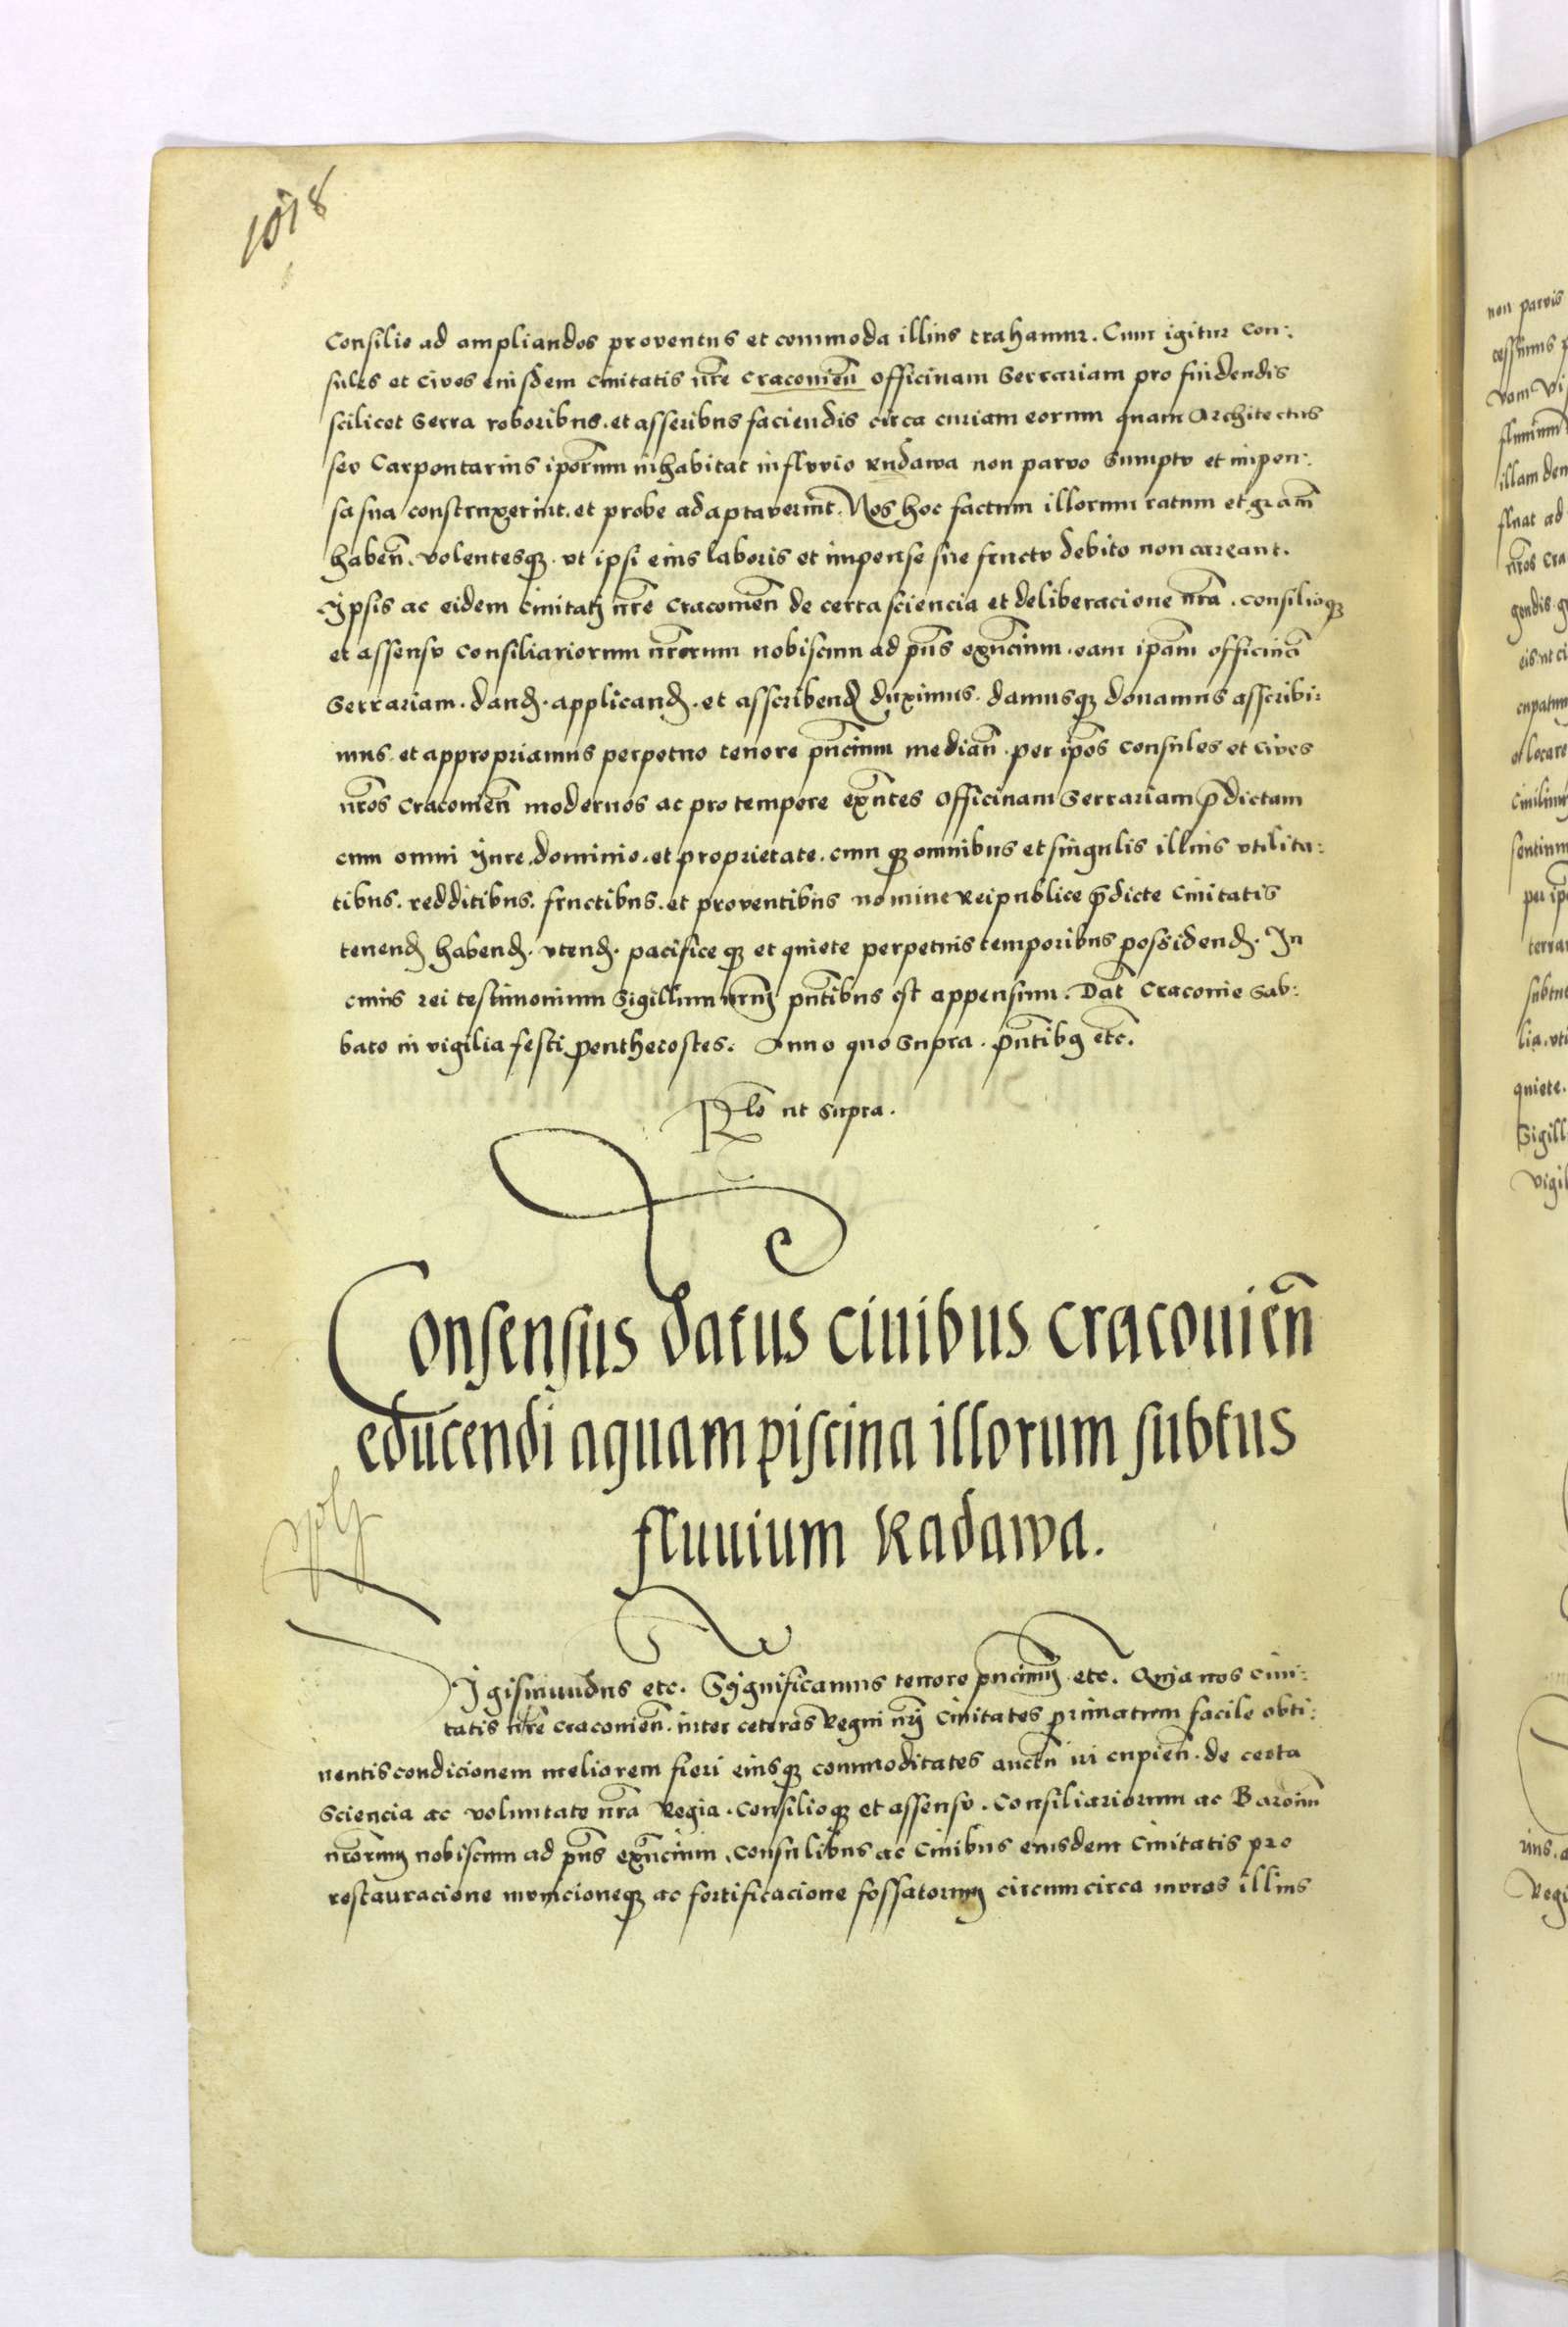 1018
Consilio ad ampliandos proventus et commoda illius trahamur. Cum igitur con:
sules et cives eiusdem civitatis nr̃e cracovien̄ officinam Serrariam pro findendis
scilicet Serra roboribus. et asseribus faciendis circa curiam eorum quam Architectus
seu Carpentarius ipõrum inhabitat in fluvio Rudawa non parvo Sumptu et inpen:
sa sua construxerint. et probe adaptaverint. Nos hoc factum illorum ratum et gratũ
haben̄. volentesqꝫ. ut ipsi eius laboris et impense sue fructu debito non careant.
Ipsis ac eidem Civitati nr̃e Cracovien̄ de certa sciencia et deliberacione nr̃a. consilioqꝫ
et assensu Consiliariorum nr̃orum nobiscum ad pñs exñcium. eam ipãm officinã
Serrariam. dand̃. applicand̃. et asscribend̃ duximus. damusqꝫ donamus asscribi:
mus. et appropriamus perpetuo tenore pñcium median̄. per ipõs Consules et Cives
nr̃os Cracovien̄ modernos ac pro tempore exñtes officinam Serrariam p̃dictam
cum omni iure. dominio. et proprietate. cum qꝫ omnibus et singulis illius utilita:
tibus. redditibus. fructibus. et proventibus nomine Reipublice p̃dicte Civitatis
tenend̃ habend̃. utend̃. pacifice qꝫ et quiete perpetuis temporibus possidend̃. In
cuius rei testimonium Sigillum nr̃um pñtibus est appensum. Dat̃ Cracovie Sab:
bato in vigilia festi Penthecostes. Anno quo Supra. pñtibꝫ etc̃.
Rlõ ut supra.
Consensus datus civibus cracovien̄
educendi aquam piscina illorum subtus
fluvium Radawa.
Sigismundus etc. Significamus tenore pñcium etc. Quia nos Civi:
tatis nr̃e Cracovien̄. inter ceteras Regni nr̃i Civitates primatum facile obti:
nentis condicionem meliorem fieri eiusqꝫ commoditates cupien̄. de certa
Sciencia ac voluntate nr̃a Regia. Consilioqꝫ et assensu. Consiliariorum ac Baronũ
nr̃orum nobiscum ad pñs exñcium. Consulibus ac Civibus eiusdem Civitatis pro
restauracione municioneqꝫ ac fortificacione fossatorum circumcirca muros illius